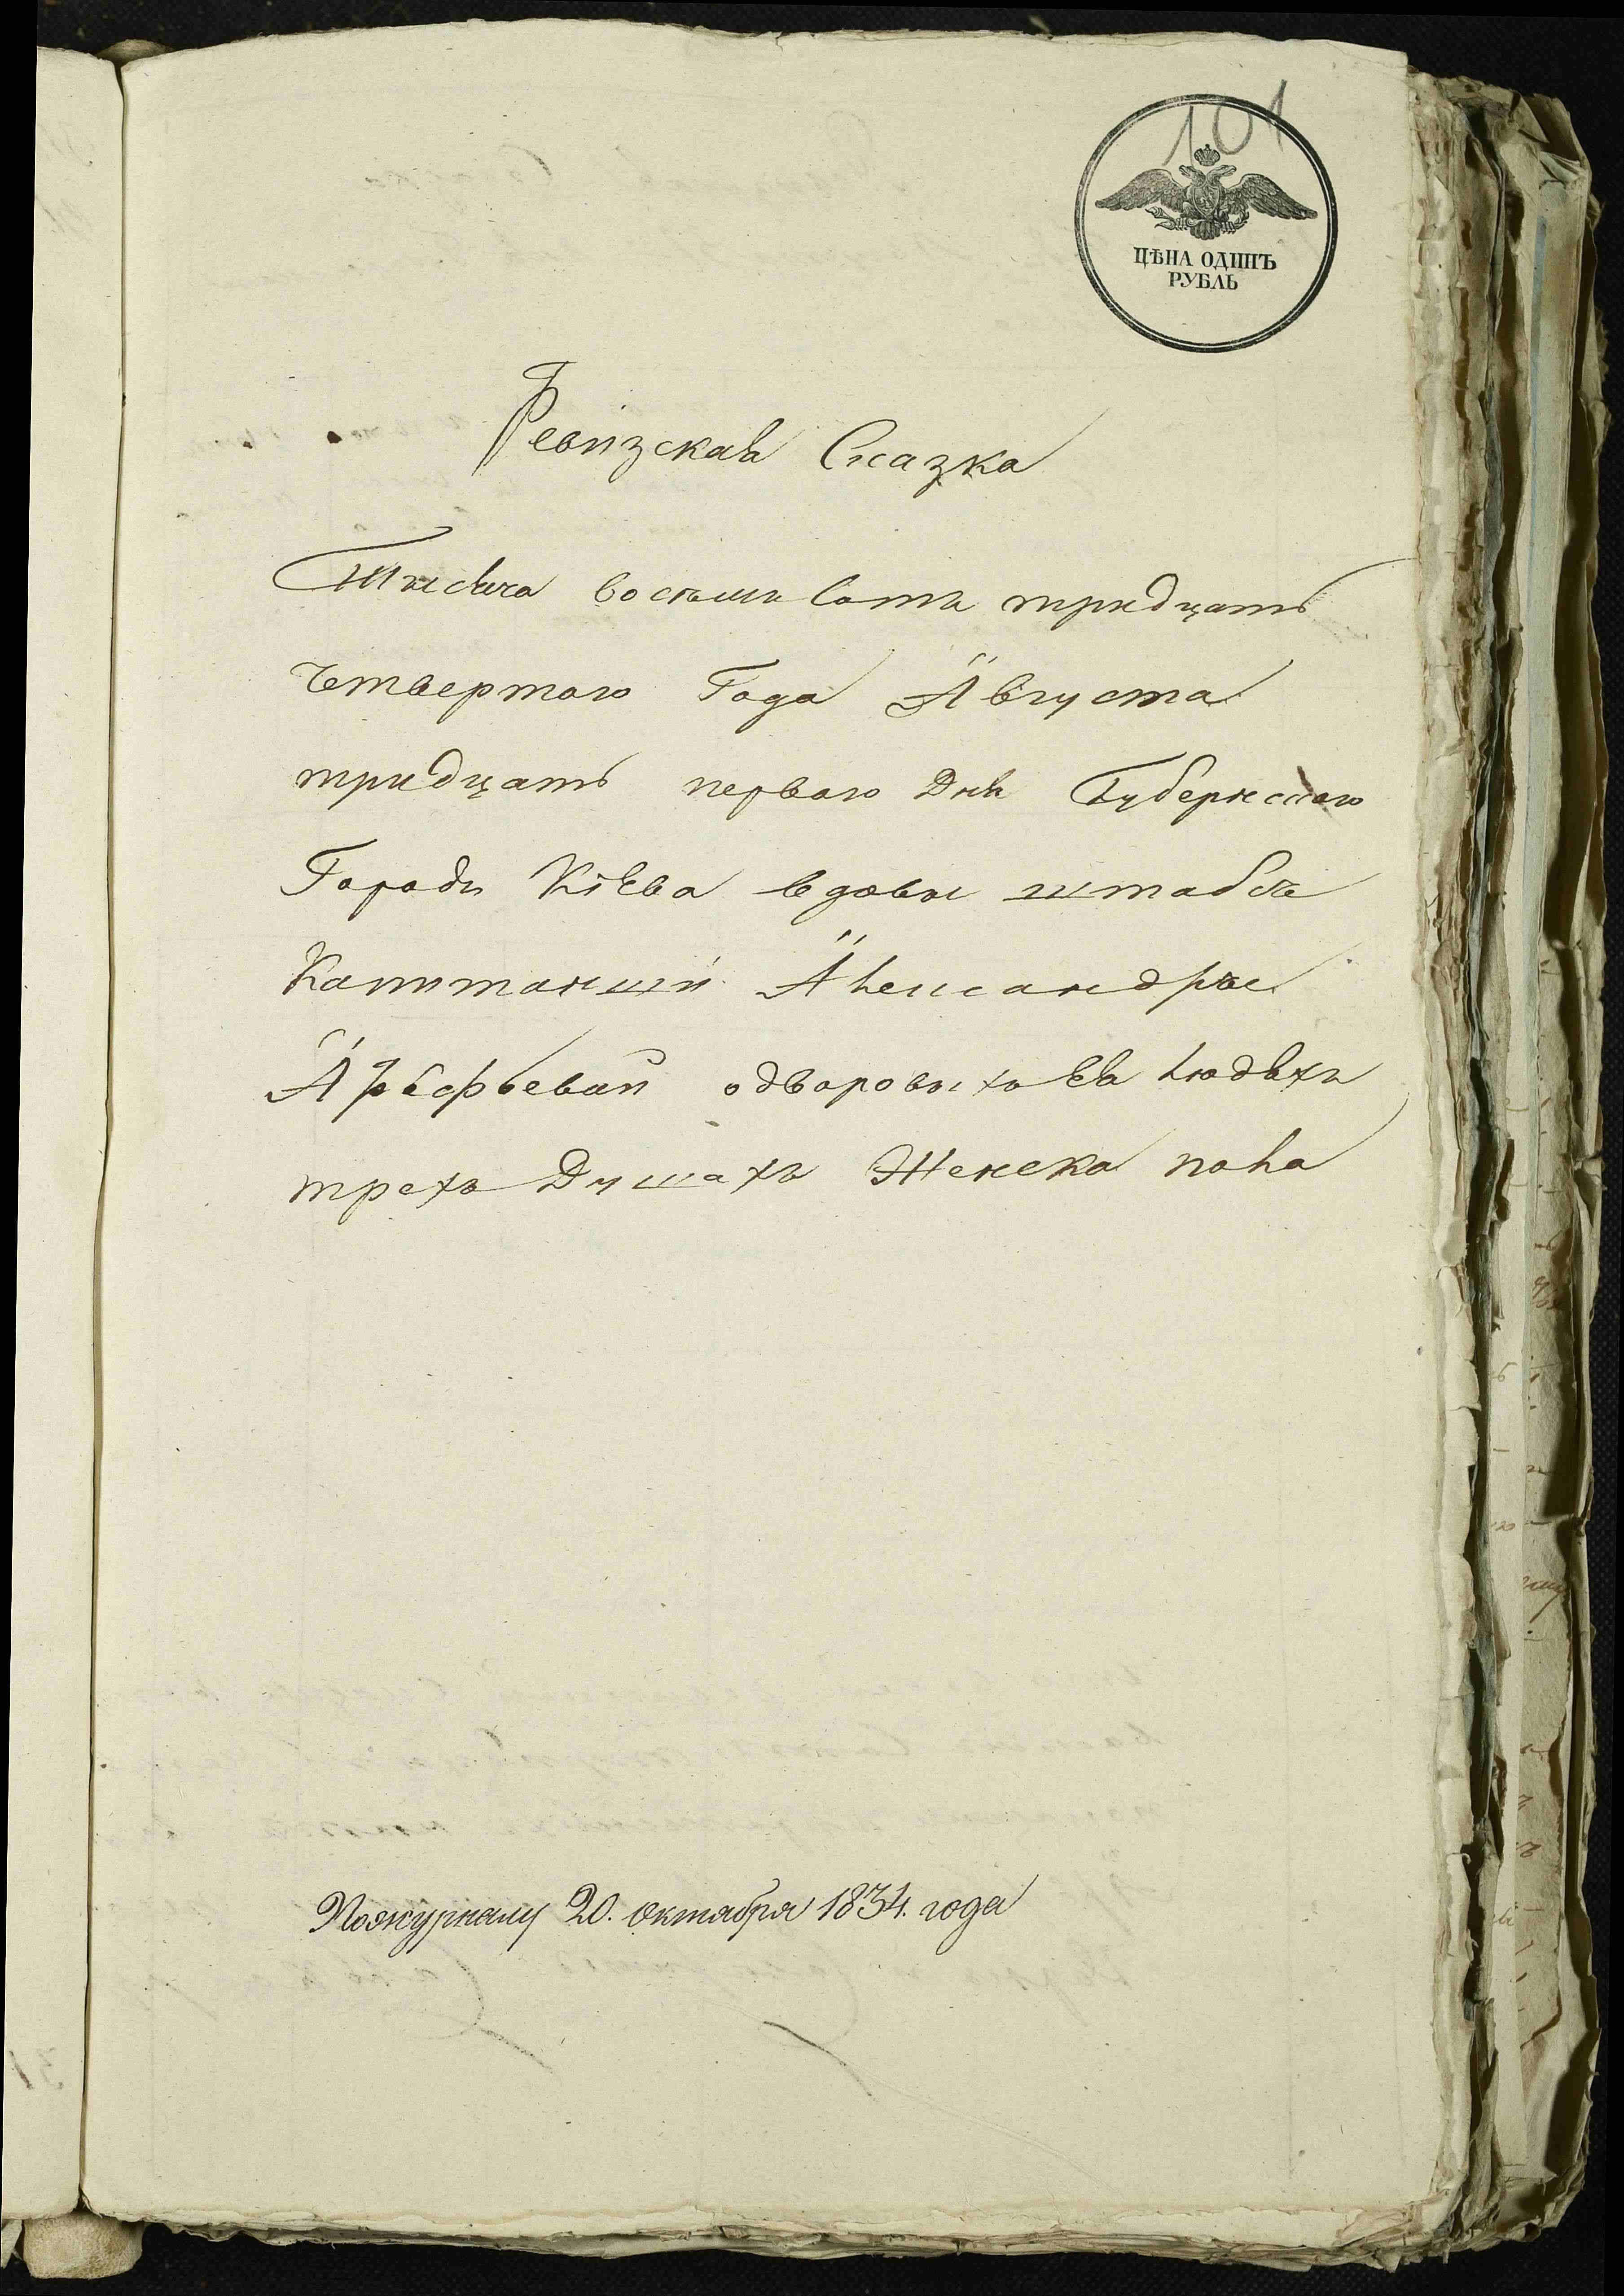 101
ЦѢНА ОДИНЪ
РУБЛЬ
Ревизская Сказка
Тысяча восемь Сотъ тридцать
Четвертого Года Августа
тридцать первого Дня Губернского
Города Кіева вдовы штабсъ
Капитанши Александры
одворовыхъ Ея людяхъ
трехъ Душахъ Женска пола
Пожурналу 20. октября 1834. года